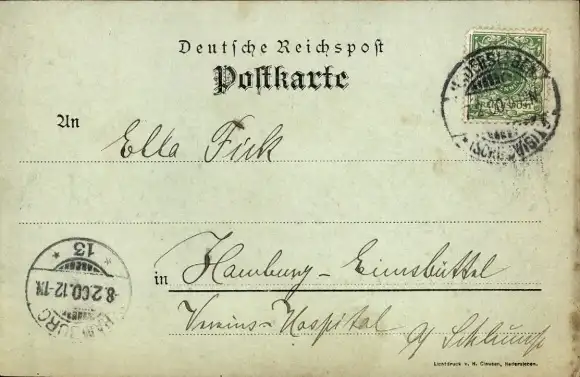 Deutsche Reichspost
Postkarte
An
Ella Fick
in Hamburg-Eimsbüttel
Vereins-Hospital a/ Schlump
HADERSLEBEN
(SCHLESWIG)
HAMBURG
8.2.00.12-1N.
* 13 *
Lichtdruck v. N. Clausen, Hadersleben.